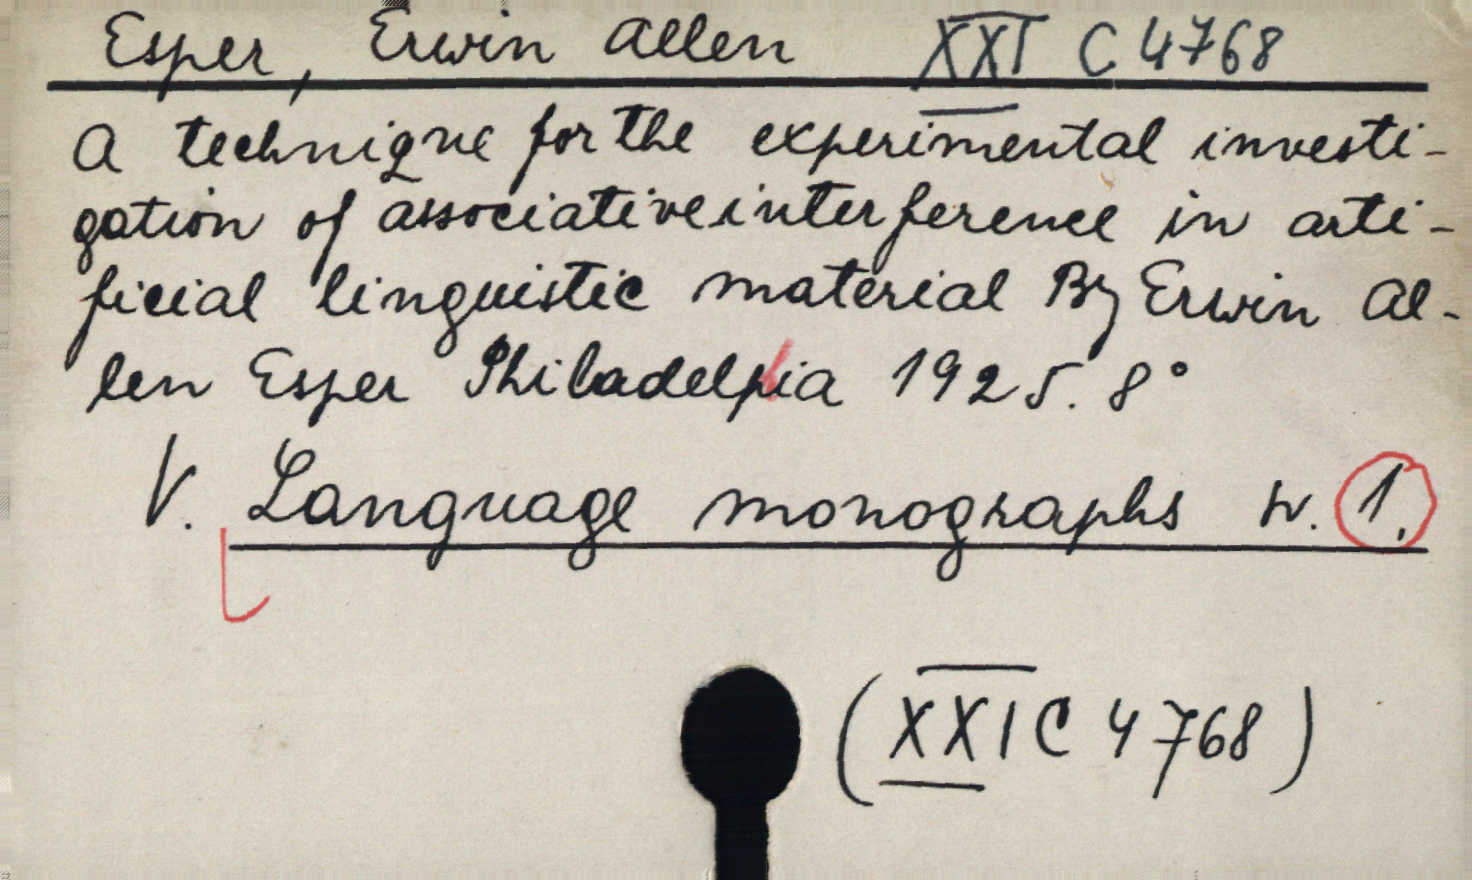 Esper, Erwin Allen XXI C 4768
A technique for the experimental investi-
gation of associative interference in arti-
ficial linguistic material By Erwin Al-
len Esper Philadelphia 1925. 8°
V. Language monographs nr. 1.
(XXI C 4768)